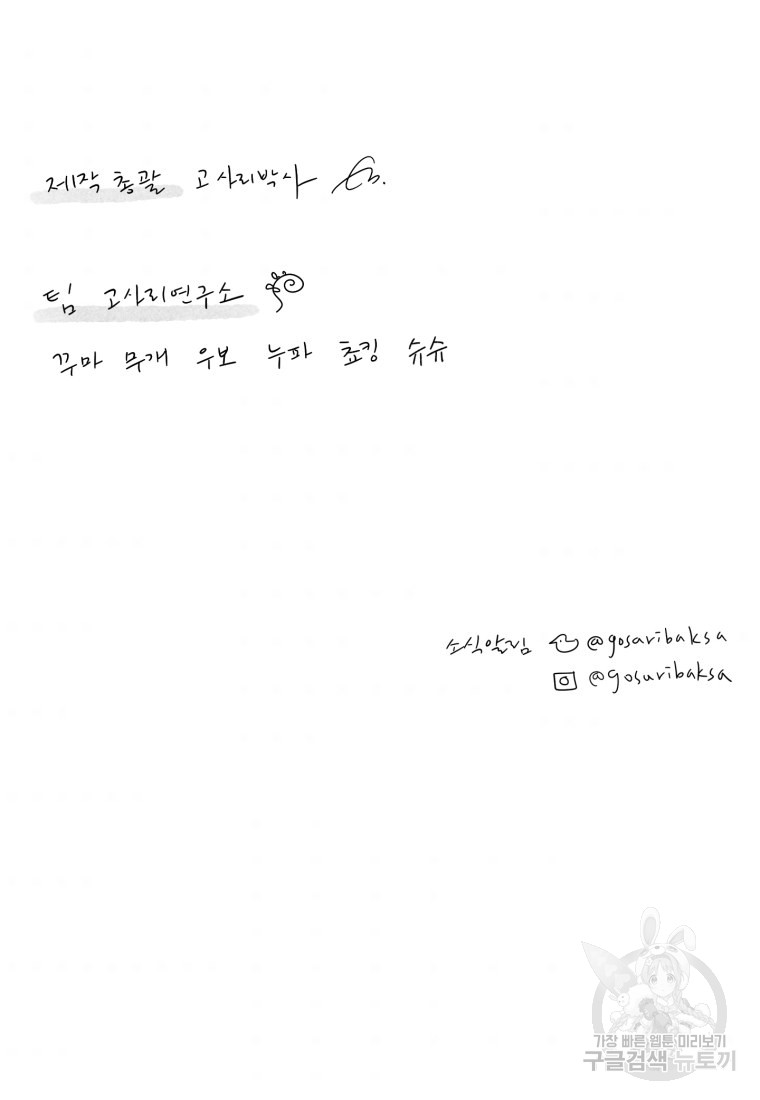 제작총괄 고사리박사
팀 고사리연구소
꾸마 무개 우보 누파 쵸킹 슈슈
소식알림 @gosaribaksa
@gosaribaksa
가장 빠른 웹툰 미리보기
구글검색 뉴토끼